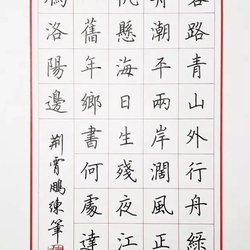 路青山外行舟綠
潮平兩岸闊風正
懸海日生殘夜江
舊年鄉書何處達
洛陽邊
荊霄鵬練筆